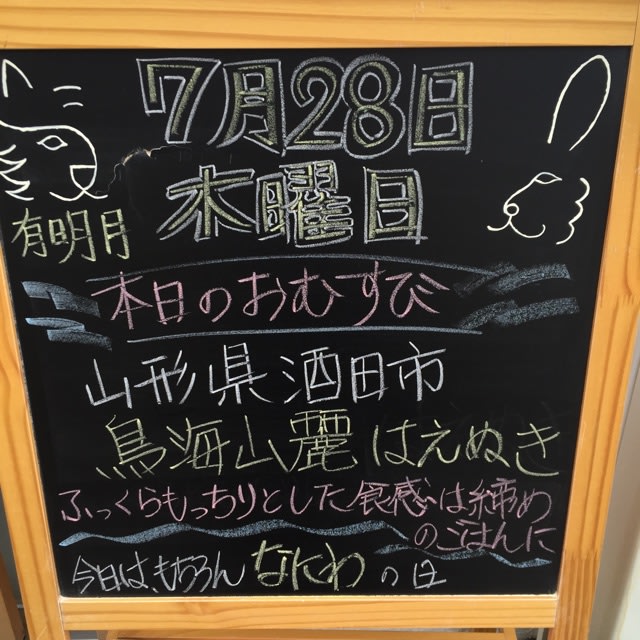 7月28日
木曜日
有明月
本日のおむすび
山形県酒田市
鳥海山麗 はえぬき
ふっくらもっちりとした食感は締め
のごはんに
今日は、もちろん なにわ の日